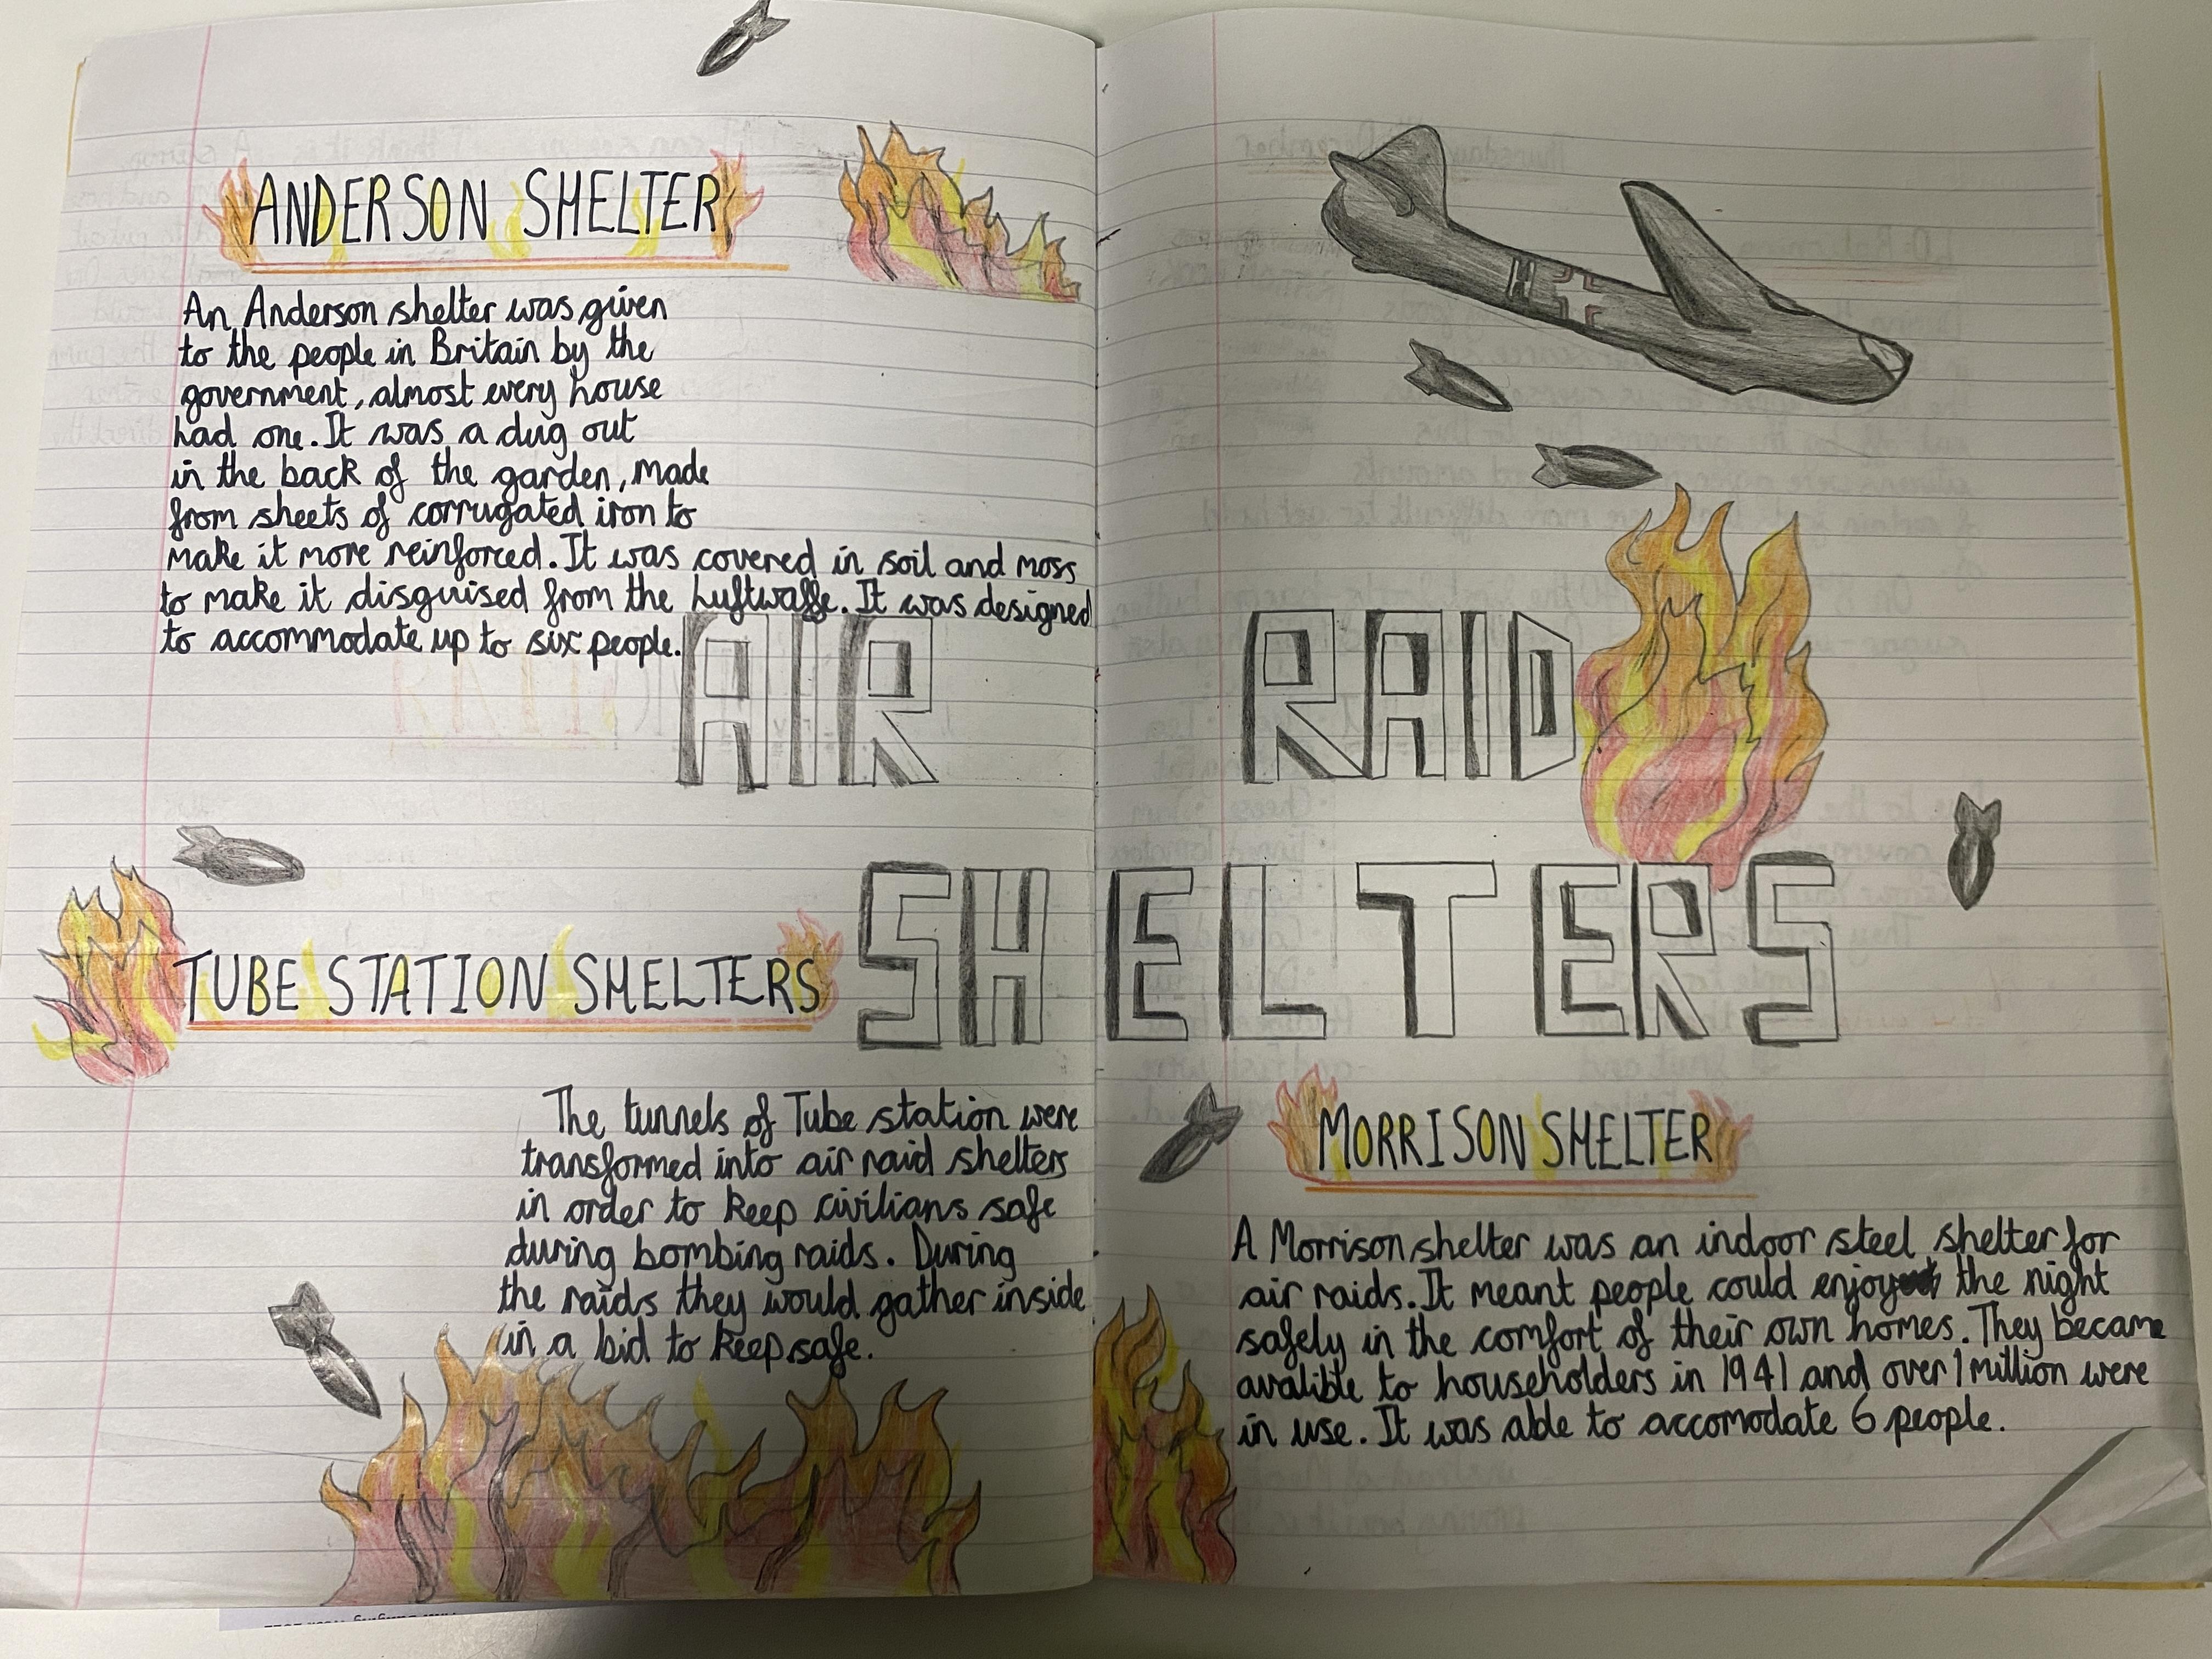 ANDERSON SHELTER
An Anderson shelter was given
to the people in Britain by the
government, almost every house
had one. It was a dug out
in the back of the garden, made
from sheets of corrugated iron to
make it more reinforced. It was covered in soil and moss
to make it disguised from the Luftwaffe. It was designed
to accommodate up to six people.
AIR RAID
SHELTERS
TUBE STATION SHELTERS
The tunnels of Tube station were
transformed into air raid shelters
in order to keep civilians safe
during bombing raids. During
the raids they would gather inside
in a bid to keep safe.
MORRISON SHELTER
A Morrison shelter was an indoor steel shelter for
air raids. It meant people could enjoy the night
safely in the comfort of their own homes. They became
avalible to householders in 1941 and over 1 million were
in use. It was able to accomodate 6 people.